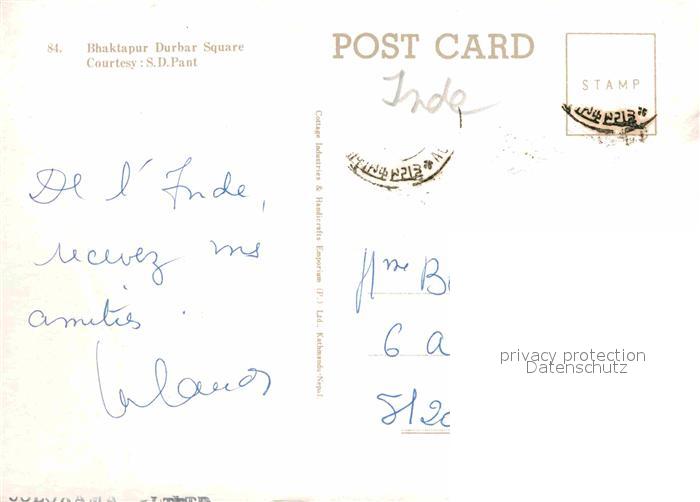 84. Bhaktapur Durbar Square
Courtesy : S.D.Pant
POST CARD
STAMP
Inde
Cottage Industries & Handicrafts Emporium (P.) Ltd., Kathmandu-Nepal
De l'Inde,
recevez mes
amitiés.
Mme B
6 A
5120
privacy protection
Datenschutz